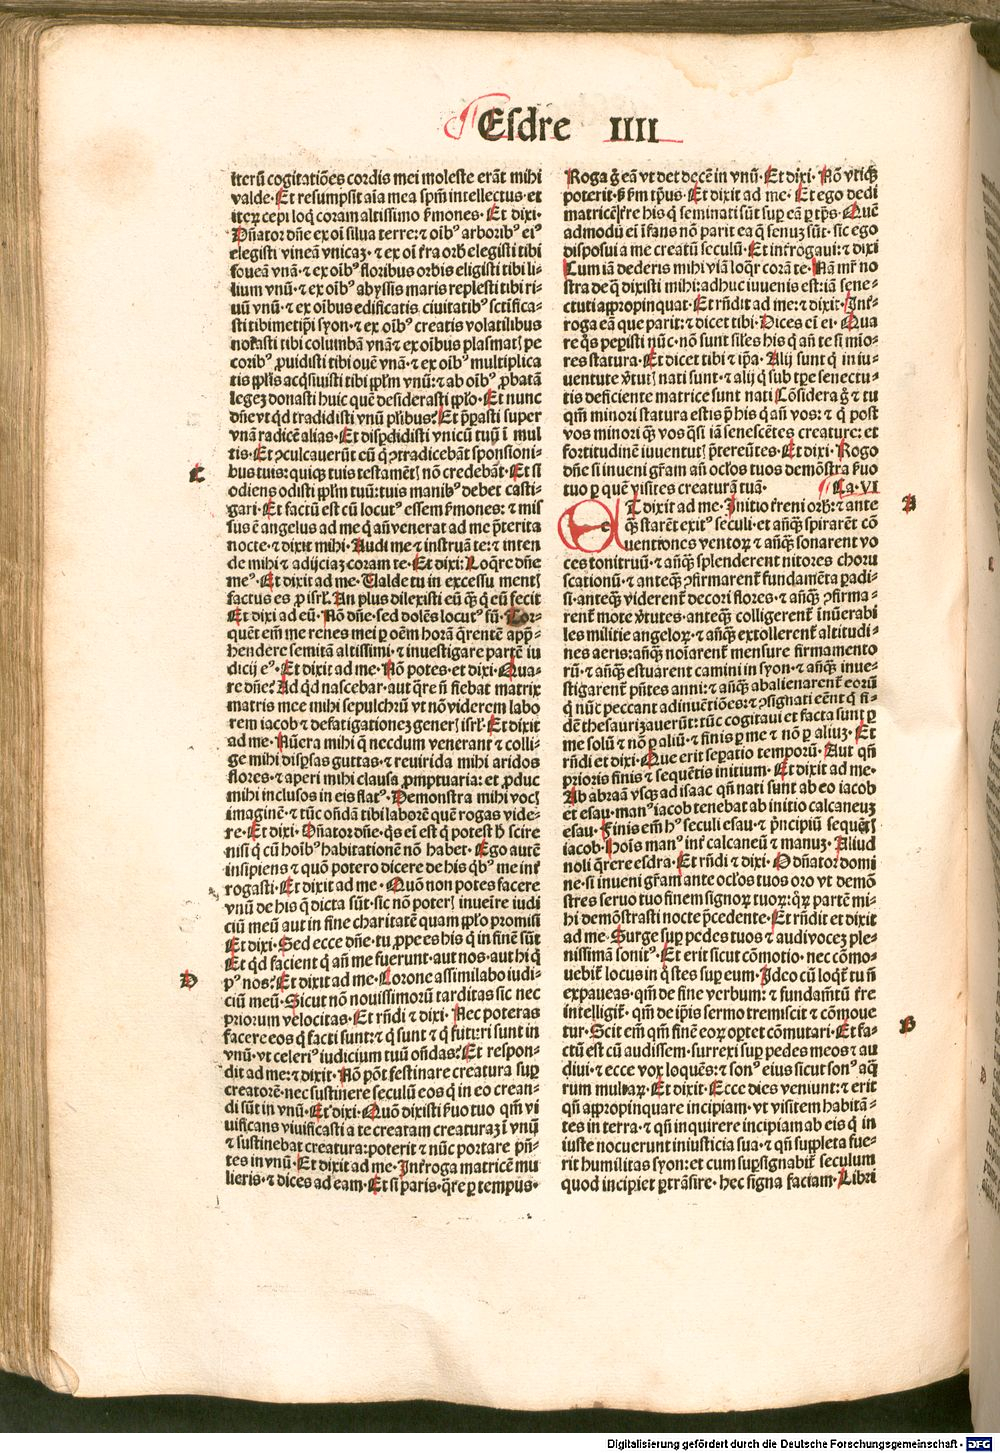 Esdre IIII
iterũ cogitatiões cordis mei moleste erãt mihi
valde. Et resumpsit aĩa mea spm̃ intellectus. et
iteꝝ cepi loq̃ coram altissimo ẜmones. Et dixi.
Dñator dñe ex oĩ silua terre: ⁊ oĩbꝰ arboribꝰ eiꝰ
elegisti vineã vnicaꝫ. ⁊ ex oĩ t̃ra orb elegisti tibi
foueã vnã. ⁊ ex oĩbꝰ floribus orbis eligisti tibi li-
lium vnũ. ⁊ ex oĩbꝰ abyssis maris replesti tibi ri-
uũ vnũ. ⁊ ex oĩbus edificatis ciuitatibꝰ sctifica-
sti tibimetip̃i syon. ⁊ ex oĩbꝰ creatis volatilibus
noĩasti tibi columbã vnã ⁊ ex oĩbus plasmatꝭ pe
coribꝰ ꝓuidisti tibi ouẽ vnã. ⁊ ex oĩbꝰ multiplica
tis pp̃lis acq̃siuisti tibi pp̃lm vnũ: ⁊ ab oĩbꝰ ꝓbatã
legeꝫ donasti huic quẽ desiderasti pp̃lo. Et nunc
dñe vt qd tradidisti vnũ pl̃ibus? Et p̃parasti super
vnã radicẽ alias. Et disꝑdidisti vnicũ tuũ ĩ mul
tis. Et ꝯculcauerũt eũ q̃ ꝯtradicebãt sponsioni-
bus tuis: quiqꝫ tuis testamẽtꝭ nõ credebãt. Et si
C
odiens odisti pp̃lm tuũ: tuis manibꝰ debet casti-
gari. Et factũ est cũ locutꝰ essem ẜmones: ⁊ mis
sus ẽ angelus ad me q̃ añ venerat ad me p̃terita
nocte. ⁊ dixit mihi. Audi me ⁊ instruã te: ⁊ inten
de mihi ⁊ adijciaꝫ coram te. Et dixi: Loq̃re dñe
meꝰ. Et dixit ad me. Valde tu in excessu mentꝭ
factus es ꝓ isrl̃. An plus dilexisti eũ qꝫ q̃ eũ fecit
Et dixi ad eũ. Nõ dñe. sed dolẽs locutꝰ sũ. Tor-
quẽt em̃ me renes mei ꝑ oẽm horã q̃rentẽ app̃-
hendere semitã altissimi. ⁊ inuestigare partẽ iu
dicij eꝰ. Et dixit ad me. Nõ potes. et dixi. Qua-
re dñe? Ad qd nascebar. aut q̃re ñ fiebat matrix
matris mee mihi sepulchrũ vt nõ viderem labo
rem iacob ⁊ defatigationeꝫ generꝭ isrl̃. Et dixit
ad me. Nũera mihi q̃ necdum venerant ⁊ colli-
ge mihi disꝑsas guttas. ⁊ reuirida mihi aridos
flores. ⁊ aperi mihi clausa ꝓmptuaria: et ꝓduc
mihi inclusos in eis flatꝰ. Demonstra mihi vocꝭ
imaginẽ. ⁊ tũc oñdã tibi laborẽ quẽ rogas vide-
re. Et dixi. Dñator dñe. q̃s ei est q̃ potest h̃ scire
nisi q̃ cũ hoĩbꝰ habitationẽ nõ habet. Ego autẽ
insipiens ⁊ quõ potero dicere de his q̃bꝰ me int̃
rogasti. Et dixit ad me. Quõ non potes facere
vnũ de his q̃ dicta sũt. sic nõ poterꝭ inueĩre iudi
ciũ meũ aut in fine charitatẽ quam pp̃lo promisi
Et dixi. Sed ecce dñe. tu ꝓpe es his q̃ in finẽ sũt
Et qd facient q̃ añ me fuerunt. aut nos. aut hi q̃
D
pꝰ nos? Et dixit ad me. Corone assimilabo iudi-
ciũ meũ. Sicut nõ nouissimorũ tarditas sic nec
priorum velocitas. Et rñdi ⁊ dixi. Nec poteras
facere eos q̃ facti sunt: ⁊ q̃ sunt ⁊ q̃ futuri sunt in
vnũ. vt celeriꝰ iudicium tuũ oñdas? Et respon-
dit ad me: ⁊ dixit. Nõ põt festinare creatura suꝑ
creatorẽ. nec sustinere seculũ eos q̃ in eo crean-
di sũt in vnũ. Et dixi. Quõ dixisti ẜuo tuo qm̃ vi
uificans viuificasti a te creatam creaturaꝫ ĩ vnũ
⁊ sustinebat creatura: poterit ⁊ nũc portare p̃ñ-
tes in vnũ. Et dixit ad me. Int̃roga matricẽ mu
lieris. ⁊ dices ad eam. Et si paris. q̃re ꝑ tempus.
Roga g̃ eã vt det decẽ in vnũ. Et dixi. Nõ vtiqꝫ
poterit. ẜ ẜm tp̃us. Et dixit ad me. Et ego dedi
matricẽ t̃re his q̃ seminati sũt suꝑ eã ꝑ tp̃s. Quẽ
admodũ ei ĩfans nõ parit ea q̃ senuꝫ sũt. sic ego
disposui a me creatũ seculũ. Et int̃rogaui: ⁊ dixi
Cum iã dederis mihi viã loq̃r corã te. Nã mr̃ no
stra de q̃ dixisti mihi: adhuc iuuenis est: iã sene-
ctuti appropinquat. Et rñdit ad me: ⁊ dixit. Int̃-
roga eã que parit: ⁊ dicet tibi. Dices em̃ ei. Qua
re q̃s peperisti nũc. nõ sunt siles his q̃ añ te sꝫ mio-
res statura. Et dicet tibi ⁊ ip̃a. Alij sunt q̃ in iu-
uentute ꝟtutꝭ nati sunt. ⁊ alij q̃ sub tp̃e senectu-
tis deficiente matrice sunt nati Cõsidera g̃ ⁊ tu
qm̃ minori statura estis p̃ his q̃ añ vos: ⁊ q̃ post
vos minori qꝫ vos q̃si iã senescẽtes creature: et
fortitudinẽ iuuentutꝭ p̃tereũtes. Et dixi. Rogo
dñe si inueni gr̃am añ ocl̃os tuos demõstra ẜuo
tuo ꝑ quẽ visites creaturã tuã. Ca. VI
A
ET dixit ad me. Initio t̃reni orb: ⁊ ante
qꝫ starẽt exitꝰ seculi. et añqꝫ spirarẽt cõ
uentiones ventoꝝ ⁊ añqꝫ sonarent vo
ces tonitruũ. ⁊ añqꝫ splenderent nitores choru
scationũ. ⁊ anteqꝫ ꝯfirmarent̃ fundamẽta ꝑadi-
si. anteqꝫ viderent̃ decori flores. ⁊ añqꝫ ꝯfirma-
rent̃ mote ꝟtutes. anteqꝫ colligerent̃ inũerabi
les militie angeloꝝ. ⁊ añqꝫ extollerent̃ altitudi-
nes aeris: añqꝫ noĩarent̃ mensure firmamento
rũ. ⁊ añqꝫ estuarent camini in syon. ⁊ añqꝫ inue-
stigarent̃ p̃ñtes anni: ⁊ añqꝫ abalienarent̃ eorũ
q̃ nũc peccant adinuẽtiões: ⁊ ꝯsignati eẽnt q̃ fi-
dẽ thesaurizauerũt: tũc cogitaui et facta sunt ꝑ
me solũ ⁊ nõ ꝑ aliũ. ⁊ finis ꝑ me ⁊ nõ ꝑ aliuꝫ. Et
rñdi et dixi. Que erit seꝑatio temporũ. Aut qñ
prioris finis ⁊ sequẽtis initium. Et dixit ad me.
Ab abraã vsqꝫ ad isaac qñ nati sunt ab eo iacob
et esau. manꝰ iacob tenebat ab initio calcaneuꝫ
esau. Finis em̃ hꝰ seculi esau. ⁊ p̃ncipiũ sequẽtꝭ
iacob. Hoĩs manꝰ int̃ calcaneũ ⁊ manuꝫ. Aliud
noli q̃rere esdra. Et rñdi ⁊ dixi. O dñator domi
ne. si inueni gr̃am ante ocl̃os tuos oro vt demõ
stres seruo tuo finem signoꝝ tuoꝝ: q̃ꝝ partẽ mi-
hi demõstrasti nocte p̃cedente. Et rñdit et dixit
ad me. Surge suꝑ pedes tuos ⁊ audi voceꝫ ple-
nissimã sonitꝰ. Et erit sicut cõmotio. nec cõmo-
uebit̃ locus in q̃ stes suꝑ eum. Ideo cũ loq̃t̃ tu ñ
expaueas. qm̃ de fine verbum: ⁊ fundam̃tũ t̃re
intelligit̃. qm̃ de ip̃is sermo tremiscit ⁊ cõmoue
B
tur. Scit em̃ qm̃ finẽ eoꝝ oꝑtet cõmutari. Et fa-
ctũ est cũ audissem. surrexi suꝑ pedes meos ⁊ au
diui. ⁊ ecce vox loquẽs: ⁊ sonꝰ eius sicut sonꝰ aq̃
rum multaꝝ. Et dixit. Ecce dies veniunt: ⁊ erit
qñ appropinquare incipiam. vt visitem habitã-
tes in terra. ⁊ qñ inquirere incipiam ab eis q̃ in
iuste nocuerunt iniusticia sua. ⁊ qñ suppleta fue-
rit humilitas syon: et cum suꝑsignabit̃ seculum
quod incipiet ꝑtrãsire. hec signa faciam. Libri
Digitalisierung gefördert durch die Deutsche Forschungsgemeinschaft - DFG